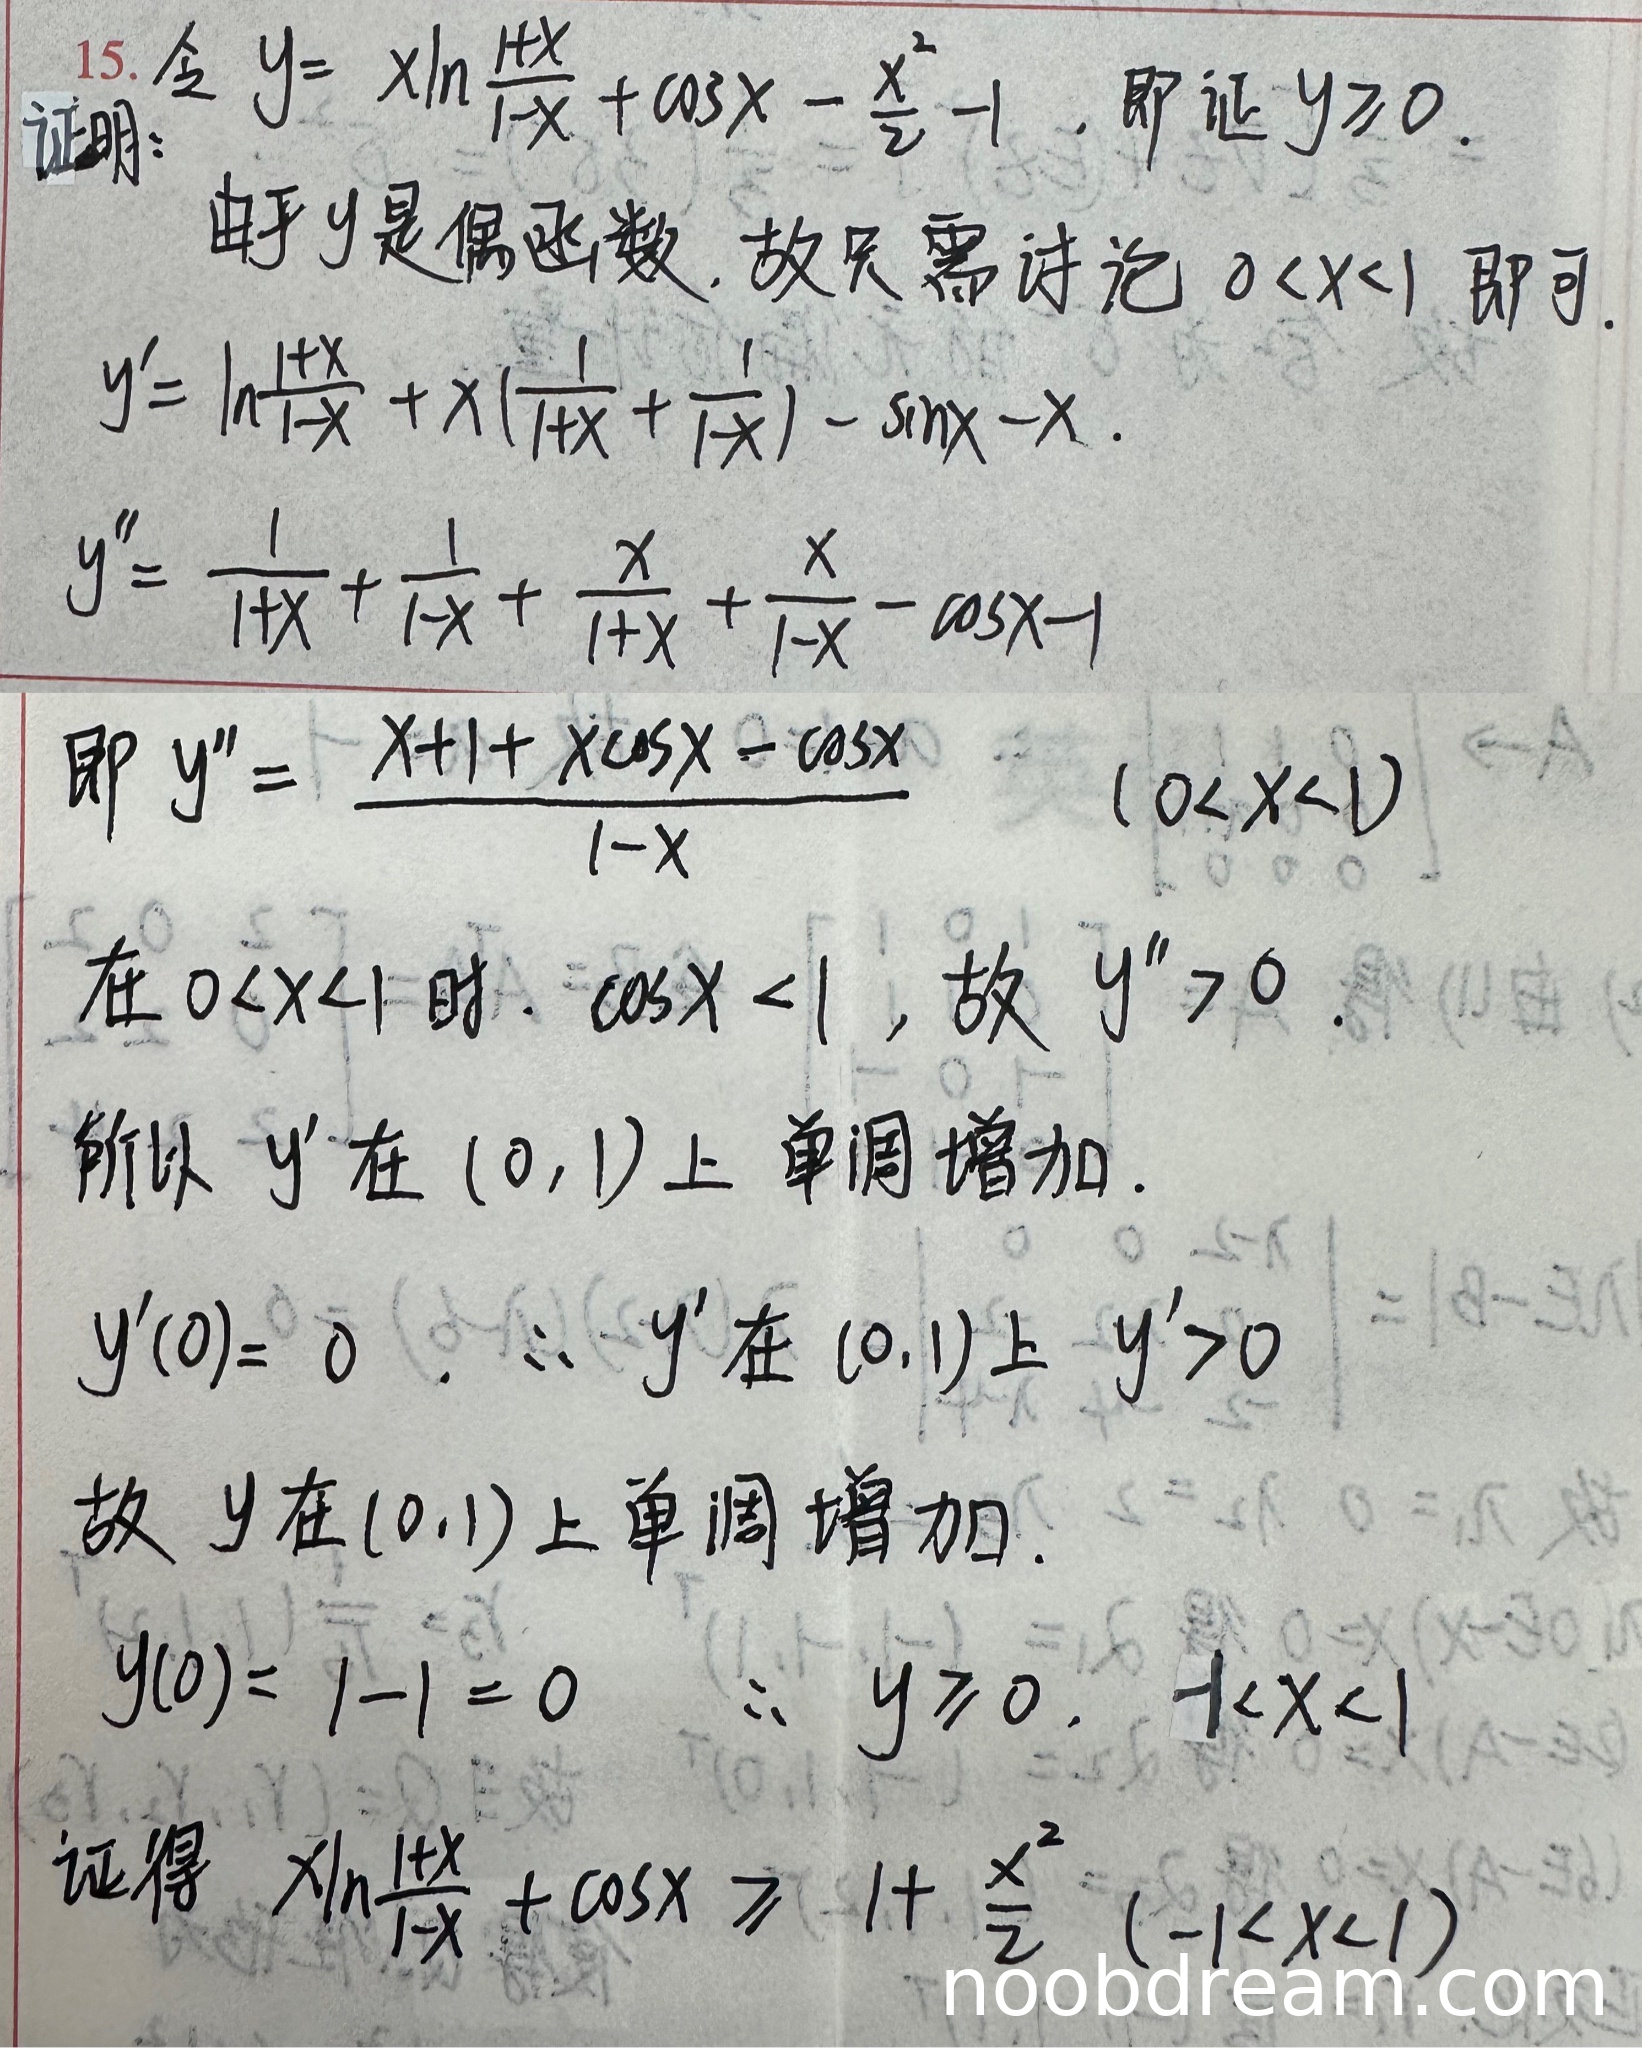 15. 令 y = xln(1+x)/(1-x) + cosx - x²/2 - 1 . 即证 y ≥ 0 .
证明:
由于 y 是偶函数. 故只需讨论 0<x<1 即可.
y' = ln(1+x)/(1-x) + x(1/(1+x) + 1/(1-x)) - sinx - x .
y'' = 1/(1+x) + 1/(1-x) + x/(1+x) + x/(1-x) - cosx - 1
即 y'' = (x+1+xcosx-cosx)/(1-x) (0<x<1)
在 0<x<1 时. cosx < 1 , 故 y'' > 0 .
所以 y' 在 (0,1) 上 单调增加.
y'(0) = 0 . ∴ y' 在 (0,1)上 y'>0
故 y 在(0,1)上单调增加.
y(0) = 1-1 = 0 ∴ y ≥ 0 . -1<x<1
证得 xln(1+x)/(1-x) + cosx ≥ 1 + x²/2 (-1<x<1)
noobdream.com